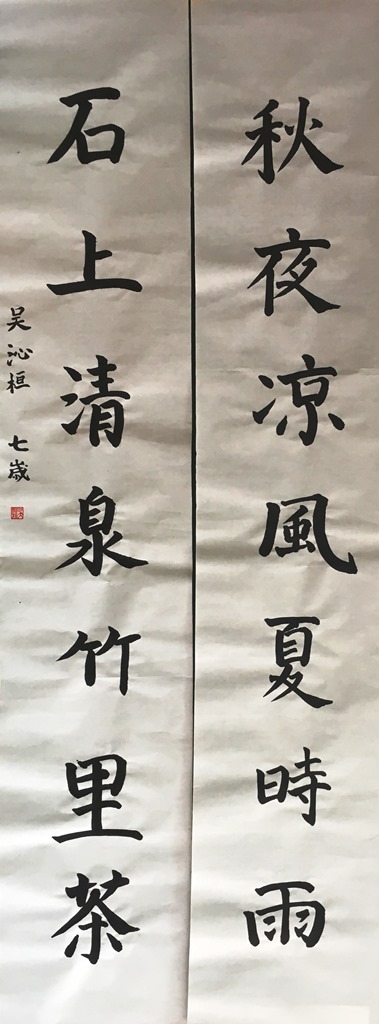 秋夜凉風夏時雨
石上清泉竹里茶
吴沁桓 七歲